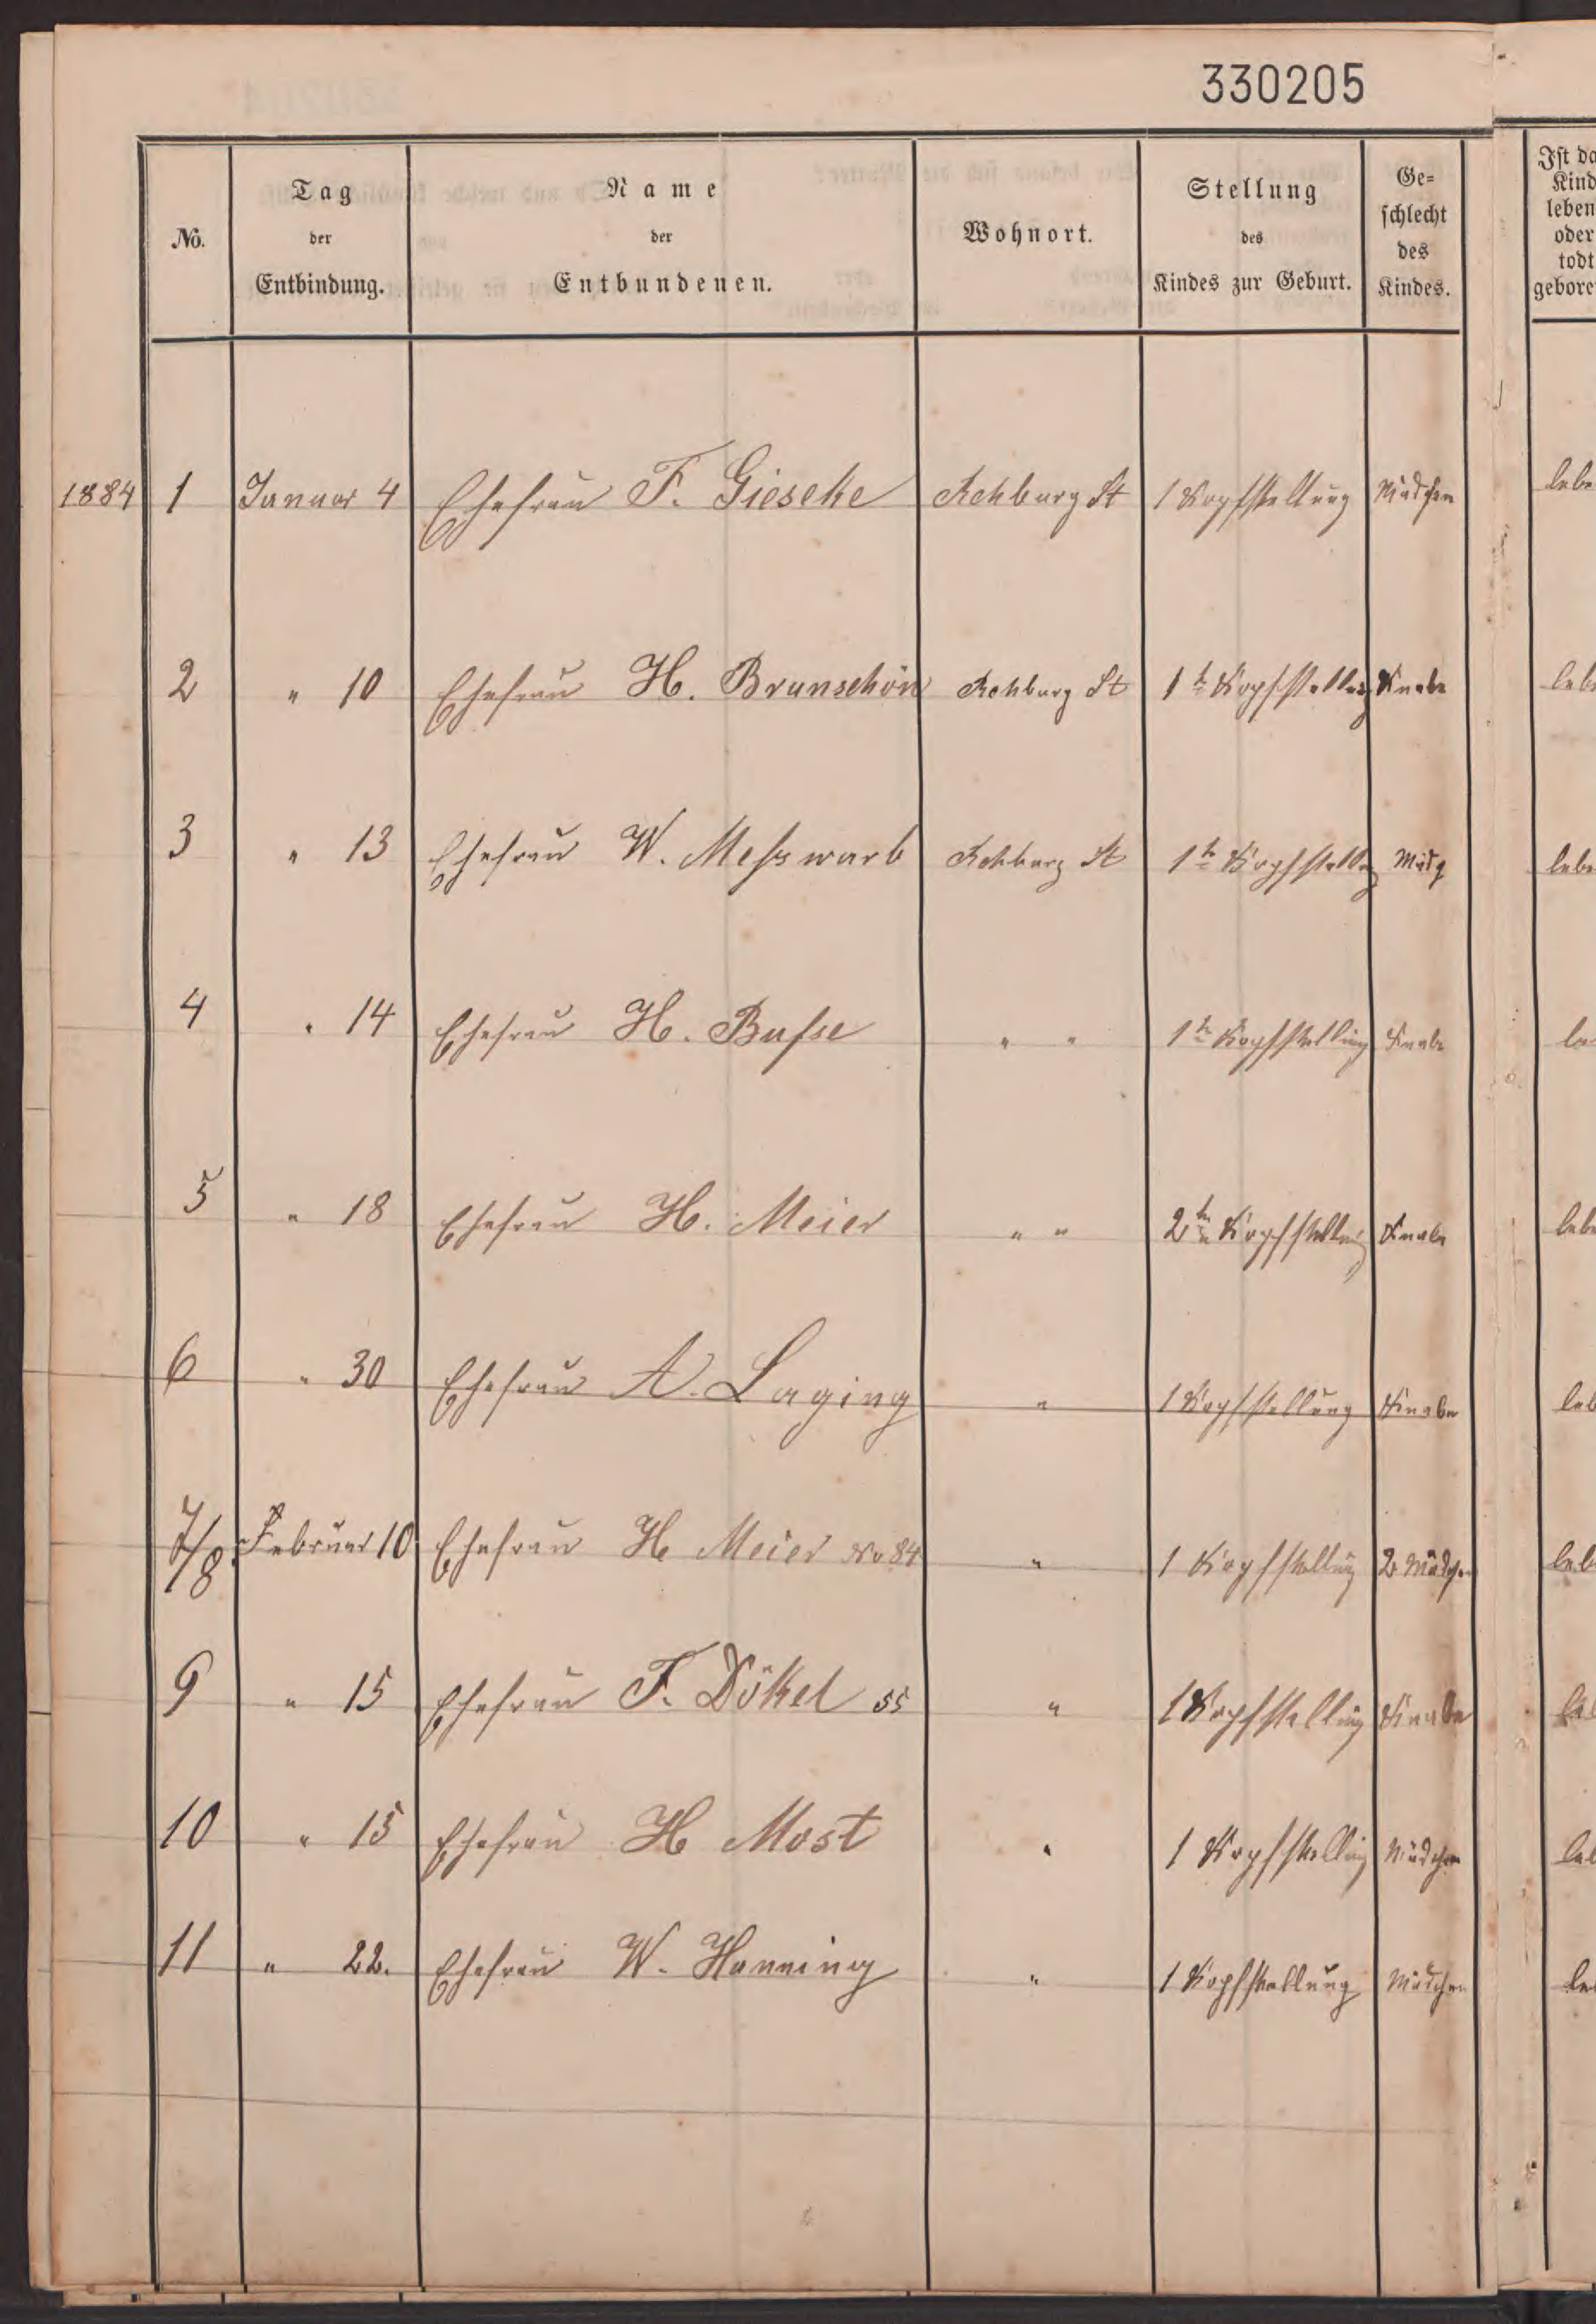 330205
No.
Tag
der
Entbindung.
Name
der
Entbundenen.
Wohnort.
Stellung
des
Kindes zur Geburt.
Ge=
schlecht
des
Kindes.
Ist da
Kind
leben
oder
todt
gebore
1884 1 Januar 4 Ehefrau F. Gieseke Rehburg St 1 Kopfstellung Mädchen lebe
2 " 10 Ehefrau H. Brunschön Rehburg St 1te Kopfstellung Knabe leb
3 " 13 Ehefrau W. Messwarb Rehburg St 1te Kopfstellg Mädg lebe
4 " 14 Ehefrau H. Busse " " 1te Kopfstellung Knabe le
5 " 18 Ehefrau H. Meier " " 2te Kopfstellung Knabe lebe
6 " 30 Ehefrau A. Laging " 1 Kopfstellung Knabe leb
7/8 Februar 10 Ehefrau H Meier No 84 " 1 Kopfstellung 2 Mädchen leb
9 " 15 Ehefrau F. Dökel 55 " 1 Kopfstellung Knabe le
10 " 15 Ehefrau H Most " 1 Kopfstellung Mädchen leb
11 " 22. Ehefrau W. Hanning " 1 Kopfstellung Mädchen le